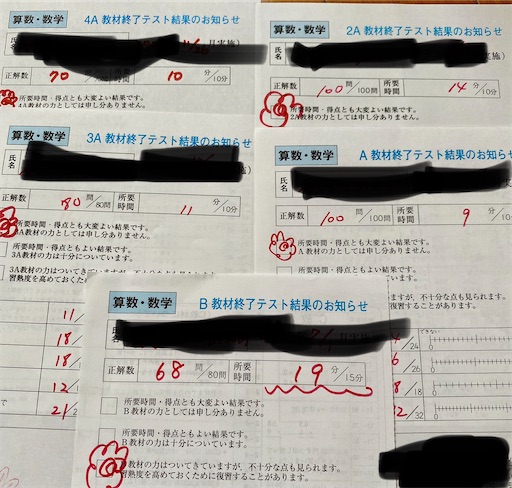 算数・数学 4A 教材終了テスト結果のお知らせ
氏
月実施)
正解数 70 所要時間 10 分/10分
所要時間・得点とも大変よい結果です。
4A教材の力としては申し分ありません。
算数・数学 2A 教材終了テスト結果のお知らせ
氏名
施)
正解数 100問/100問 所要時間 14 分/10分
所要時間・得点とも大変よい結果です。
2A教材の力としては申し分ありません。
算数・数学 3A 教材終了テスト結果のお知らせ
氏名
正解数 80問/80問 所要時間 11 分/10分
所要時間・得点とも大変よい結果です。
3A教材の力としては申し分ありません。
所要時間・得点ともよい結果です。
3A教材の力は十分についています。
3A教材の力はついてきていますが、
習熟度を高めておくため
11/
18/
18/
12/
21/2
算数・数学 A 教材終了テスト結果のお知らせ
氏名
正解数 100問/100問 所要時間 9 分/10分
所要時間・得点とも大変よい結果です。
A教材の力としては申し分ありません。
所要時間・得点ともよい結果です。
ますが、不十分な点も見られます。
復習することがあります。
できない
/24
6/26
8/18
/32
算数・数学 B 教材終了テスト結果のお知らせ
氏名
正解数 68問/80問 所要時間 19分/15分
所要時間・得点とも大変よい結果です。
B教材の力としては申し分ありません。
所要時間・得点ともよい結果です。
B教材の力は十分についています。
教材の力はついてきていますが、不十分な点も見られます。
習熟度を高めておくために復習することがあります。